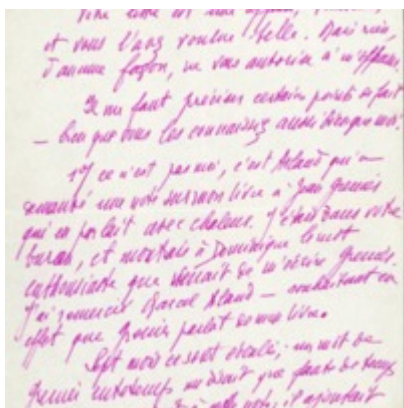 Votre lettre est une
et vous l'avez voulue telle. Mais rien,
d'aucune façon, ne vous autorise à m'offenser.
Il me faut préciser certains points de fait
— bien que vous les connaissiez aussi bien que moi.
1) ce n'est pas moi, c'est Arland qui a
demandé une note sur mon livre à Jean Grenier
qui en parlait avec chaleur. J'étais dans votre
bureau, et montrais à Dominique le mot
enthousiaste que venait de m'écrire Grenier.
J'ai remercié Marcel Arland — souhaitant en
effet que Grenier parlât de mon livre.
Sept mois se sont écoulés; un mot de
Grenier entretemps me disait que faute de temps
note, il ajoutait